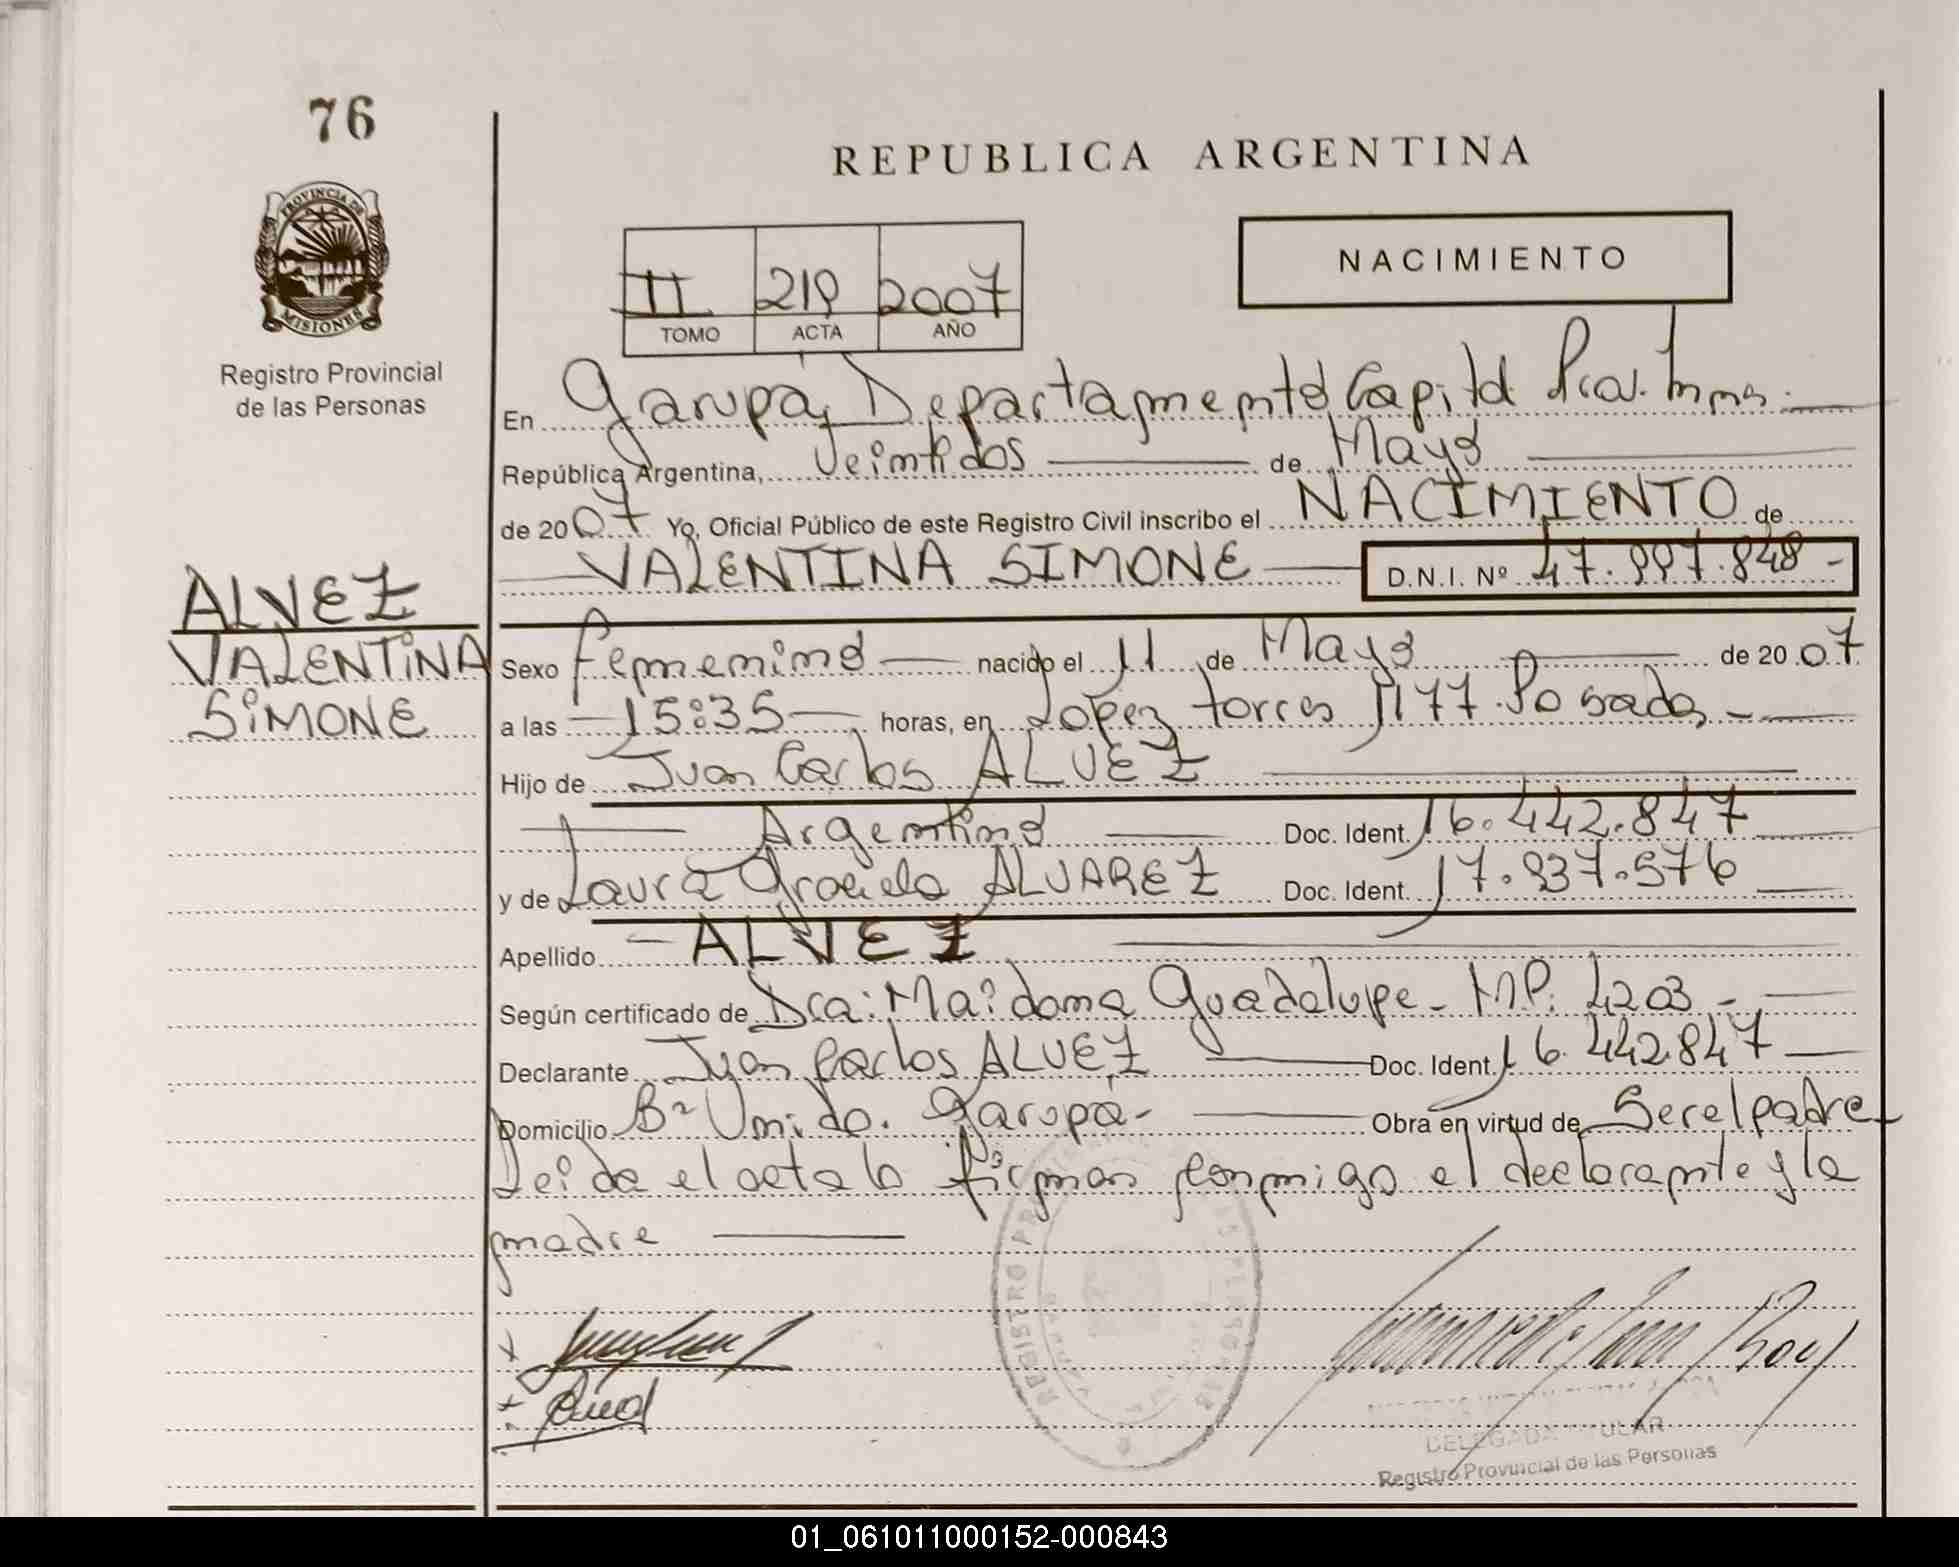 76
REPUBLICA ARGENTINA
PROVINCIA DE
MISIONES
Registro Provincial
de las Personas
NACIMIENTO
II 219 2007
TOMO ACTA AÑO
En Garupá, Departamento Capital Pcia. Mnes.
República Argentina, Veintidos de Mayo
de 2007 Yo, Oficial Público de este Registro Civil inscribo el NACIMIENTO de
VALENTINA SIMONE D.N.I. Nº 47.997.848-
ALVEZ
VALENTINA
SIMONE
Sexo femenino nacido el 11 de Mayo de 2007
a las 15:35 horas, en Lopez torres 1177. Posadas
Hijo de Juan Carlos ALVEZ
Argentino Doc. Ident. 16.442.847
y de Laura Graciela ALVAREZ Doc. Ident. 17.937.576
Apellido ALVEZ
Según certificado de Dra: Maidana Guadalupe - M.P. 4203-
Declarante Juan Carlos ALVEZ Doc. Ident. 16.442.847
Domicilio Bº Unido. Garupá- Obra en virtud de Ser el padre
Leida el acta la firman conmigo el declarante y la
madre
REGISTRO
DELEGADA TITULAR
Registro Provincial de las Personas
01_061011000152-000843